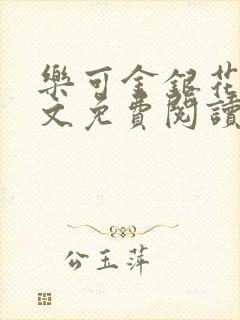 樂可金銀花
文免費閱讀
公玉萍